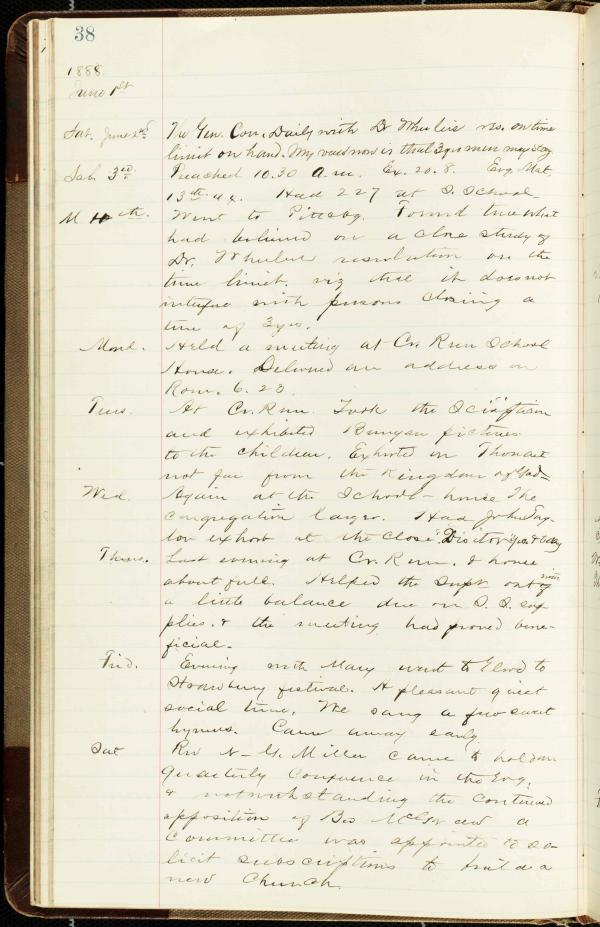 38
1888.
June 1st
Sat. June 2nd The Gen. Con. Daily with Dr Wheelers res. on time
limit on hand. My view now is that 3 yrs men may stay
Sab. 3rd. Preached 10.30 a.m. Ex. 20.8. Evg. Mat.
13th 44. Had 227 at S. School
M 4th. Went to Pittsbg. Found true what
had believed on a close study of
Dr. Wheeler resolution on the
time limit. viz that it does not
interfere with persons closing a
time of 3 yrs.
Mond. Held a meeting at Cr. Run School
House. Delivered an address on
Rom. 6.23
Tues. At Cr. Run. Took the
and exhibited Bunyan pictures
to the children. Exhorted on Thou art
not far from the Kingdom of God=
Wed. Again at the School-house The
congregation larger. Had John Tay-
lor exhort at the close.
Thurs. Last evening at Cr. Run. & house
about full. Helped the Supt out of
a little balance due on S. S. sup
plies. & the meeting had proved bene-
ficial.
Frid. Evening with Mary went to Elrod to
Strawberry festival. A pleasant quiet
social time. We sang a few sweet
hymns. Came away early
Sat Rev N- G. Miller came to hold our
Quarterly Conference in the Evg.
& notwithstanding the continued
opposition of Bro McGrew a
Committee was appointed to so-
licit subscriptions to build a
new Church.